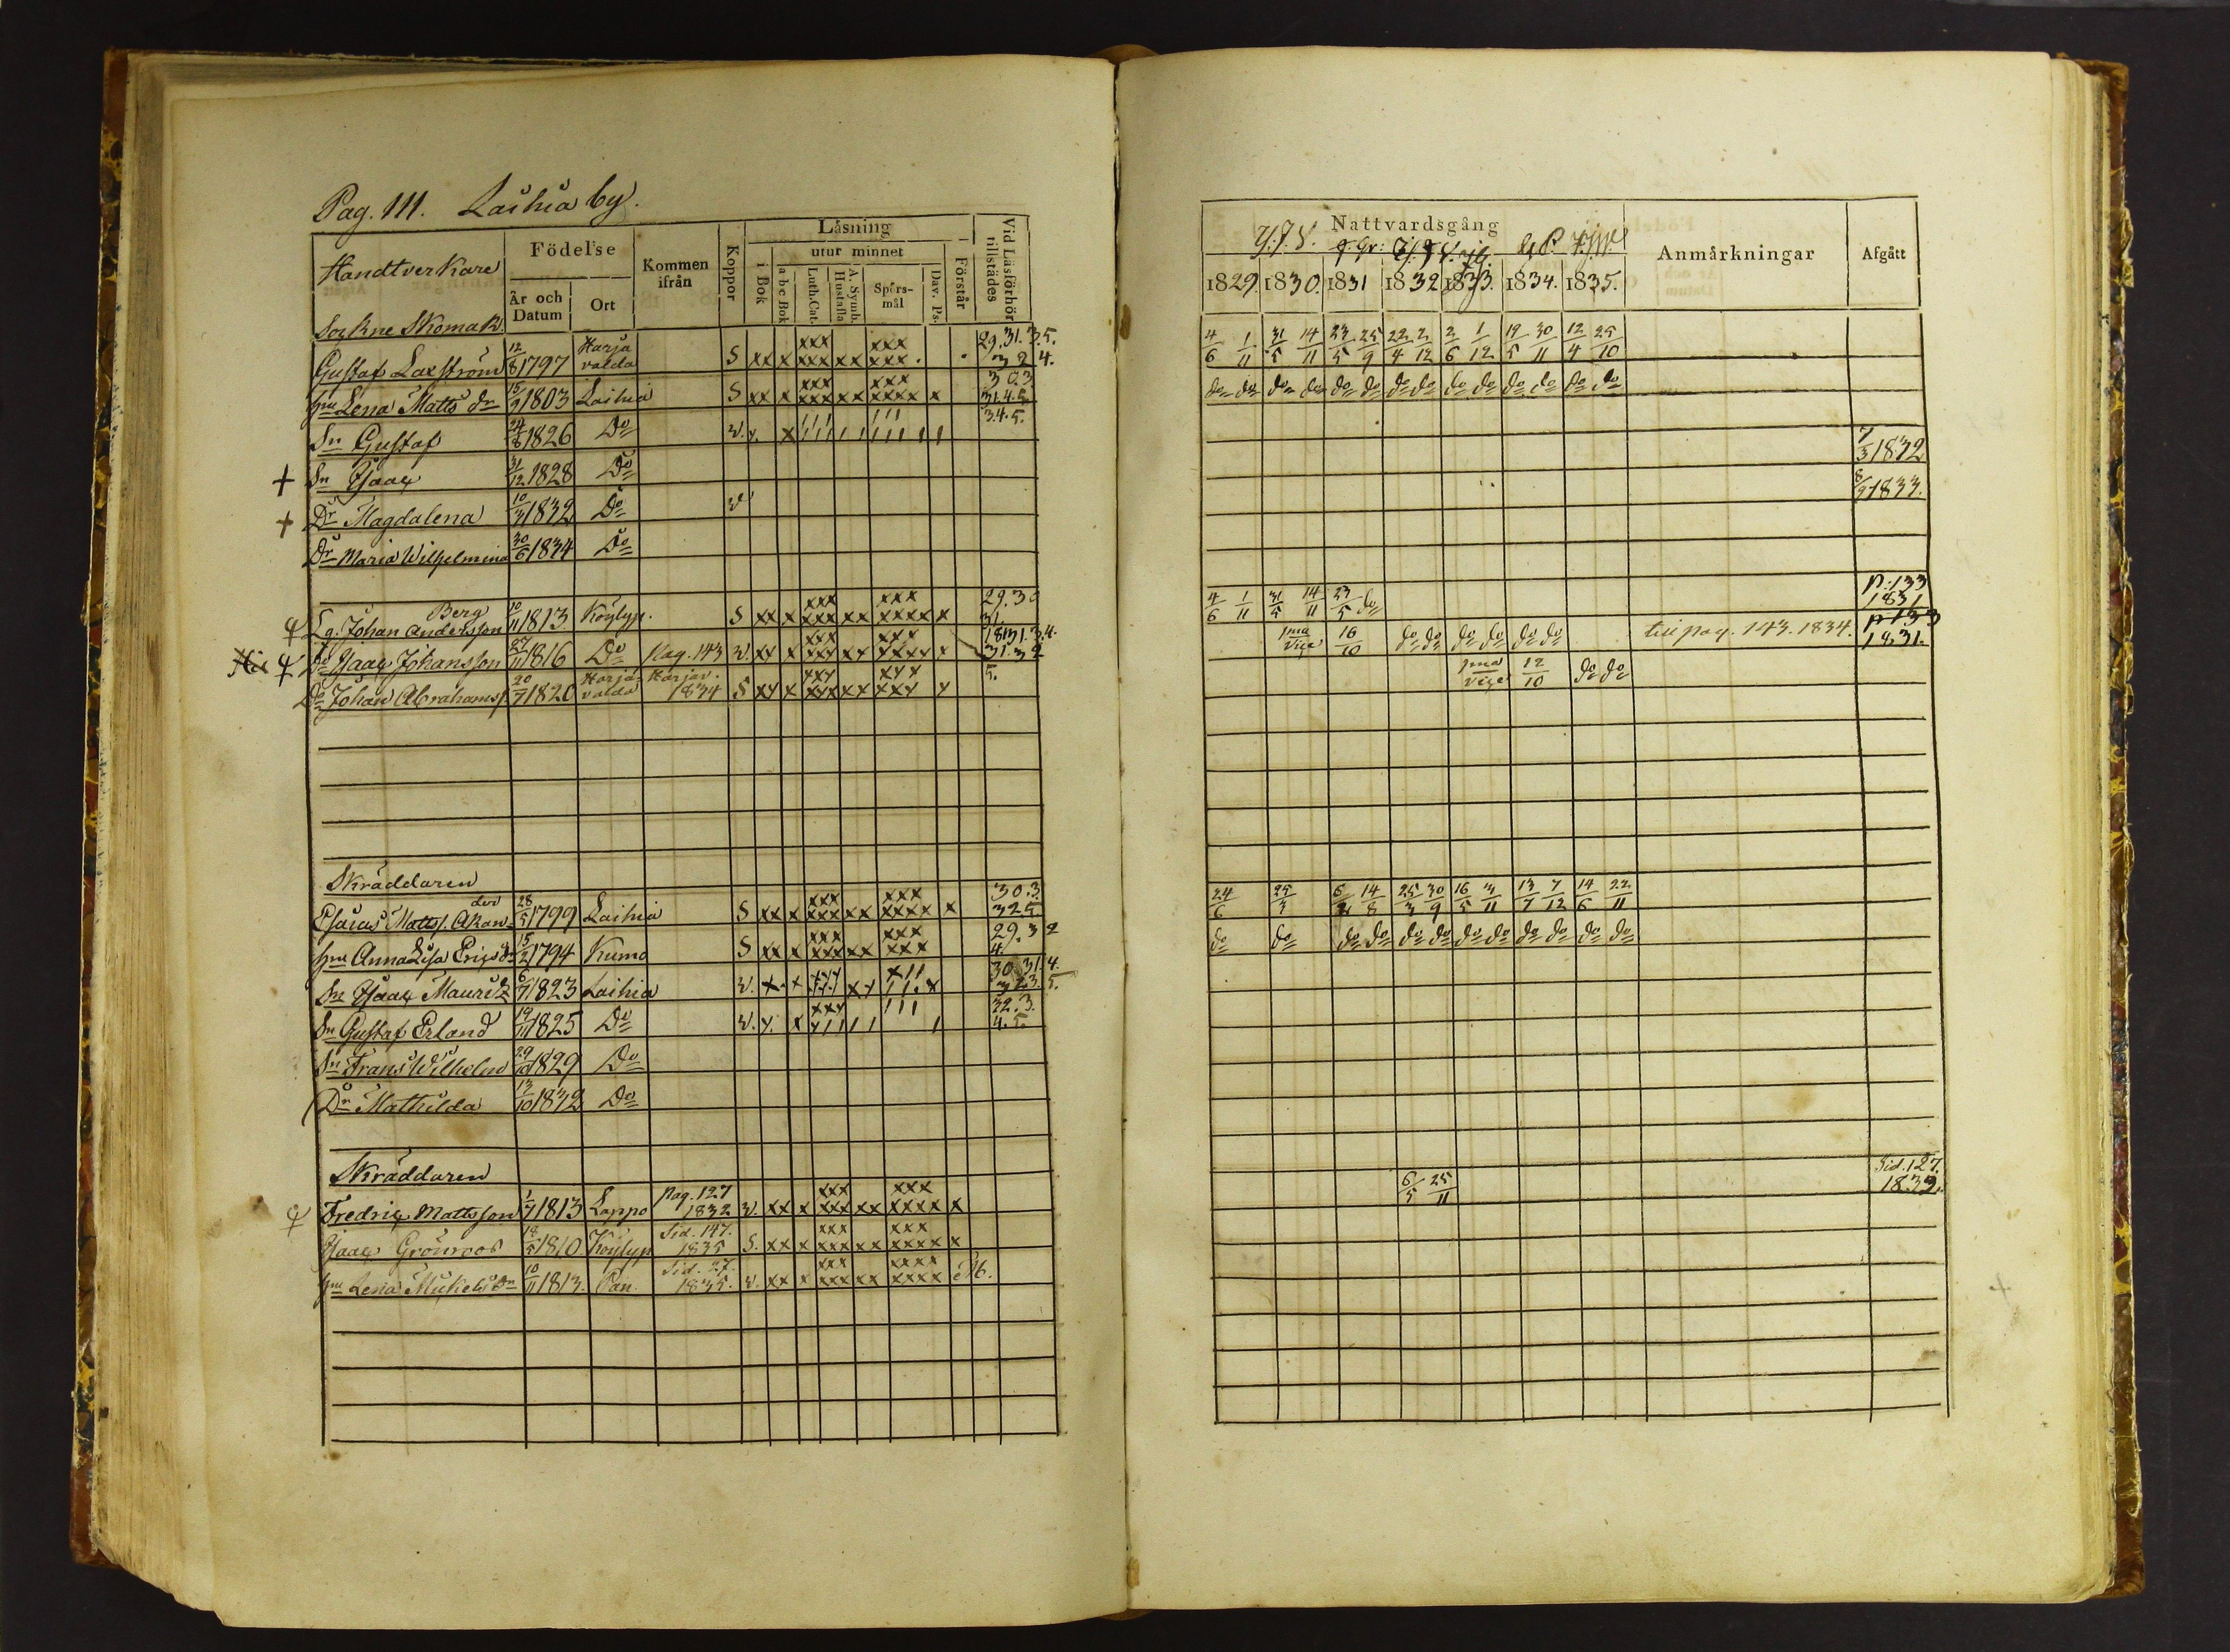 Pag. 111. Laihia by.
Handtverkare
Födelse
Kommen ifrån
Koppor
Läsning
Vid Läsförhör tillstädes
utur minnet
Förstår
År och Datum
Ort
i Bok
a b c Bok
Luth. Cat.
A. Symb. Hustafla
Spörsmål
Dav. Ps.
Sokne Skomak.
Gustaf Laxström 12/8 1797 Harjavalda S xx x xxx xxx xx xxx xxx 29. 31. 3.5. 3 2 4.
Hu Lena Matts dr 15/9 1803 Laihia S xx x xxx xxx xx xxx xxxx x 30.3 31.4.5
Sn Gustaf 24/6 1826 Do W. 3 4. 5.
+ Sn Isaac 31/12 1828 Do
+ Dr Magdalena 10/3 1832 Do W
Dr Maria Wilhelmina 30/6 1834 Do
Lg. Johan Andersson Berg 10/11 1813 Köylyp. S xx x xxx xxx xx xxx xxxx x 29. 30 31.
Do Isaac Johansson 27/11 1816 Do Pag. 143 W xx x xxx xxx xx xxx xxxx x
Do Johan Abrahamss. 20/7 1820 Harjavalda Harjav. 1834 S xx x xxx xxx xx xxx xxx x 5.
Skräddaren
Esaias Matts. Akander 28/5 1799 Laihia S xx x xxx xxx xx xxx xxxx x 30.3 32 5
Hu Anna Lisa Erics dr 15/2 1794 Kumo S xx x xxx xxx xx xxx xxx 29. 32 4.
Sn Isaac Mauritz 6/7 1823 Laihia W. 30. 31. 4. 32.3. 5.
Sn Gustaf Erland 19/11 1825 Do W. 32. 3. 4. 5.
Sn Frans Wilhelm 29/10 1829 Do
Dr Mathilda 13/10 1832 Do
Skräddaren
Fredric Mattsson 1/7 1813 Lappo Pag. 127 1832 W. xx x xxx xxx xx xxx xxxx x
Isaac Grönroos 1810 Köylyp Sid. 147. 1835 S. xx x xxx xxx xx xxx xxxx x
Hu Lena Michels dr 10/11 1813. Sid. 27. 1835. W. xx x xxx xxx xx xxxx xxxx
Nattvardsgång
Anmärkningar
Afgått
1829. 1830. 1831 1832 1833. 1834. 1835.
4/6 1/11 31/5 14/11 23/5 25/9 22/4 2/12 2/6 1/12 19/5 30/11 12/4 25/10
do do do do do do do do do do do do do do
7/3 1832
8/9 1833.
4/6 1/11 31/5 14/11 23/5 do p. 133 1831
1ma vice 16/10 do do do do do do till pag. 143. 1834. p 133 1831.
1ma vice 12/10 do do
24/6 25/3 14/8 25/3 30/9 16/5 3/11 13/7 7/12 14/6 22/11
do do do do do do do do do do do do
6/5 25/11 Sid. 127. 1833.